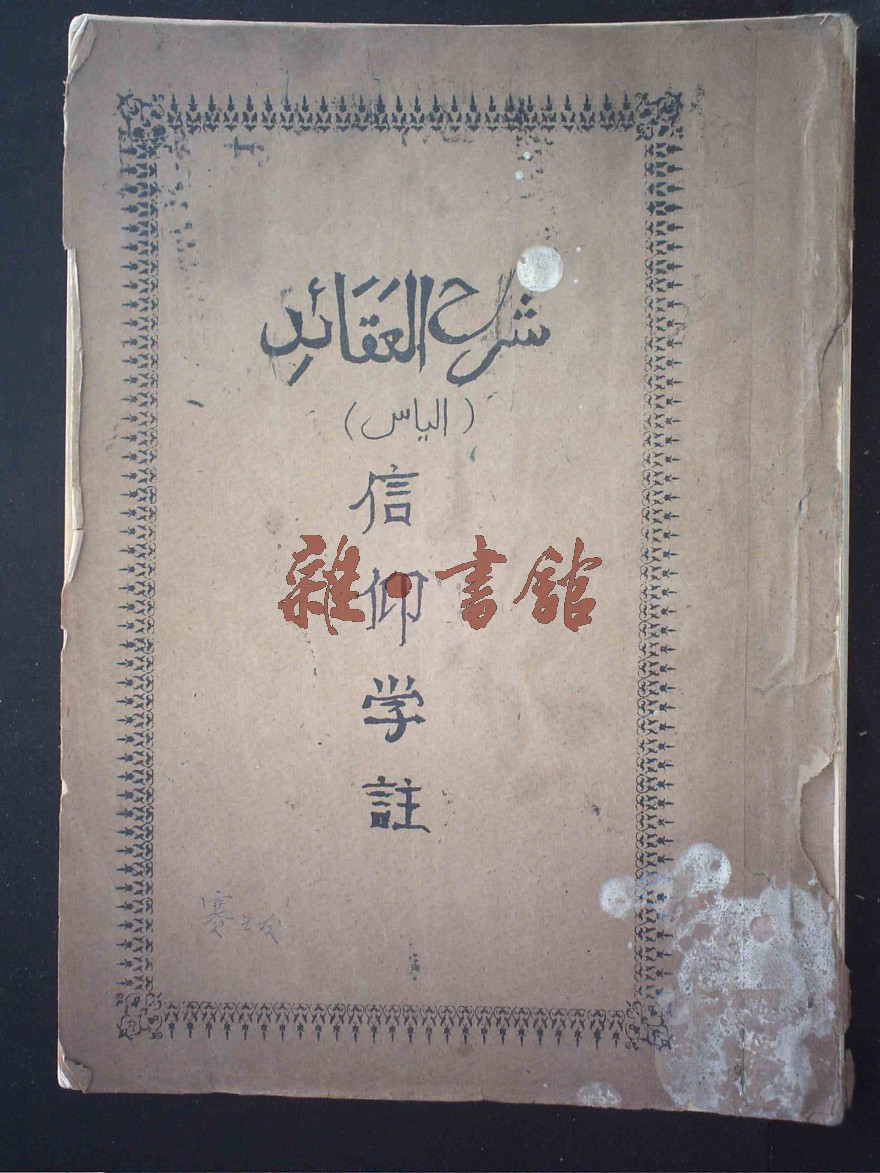 شرح العَقَائِد
(الياس)
信仰学註
雜·書館